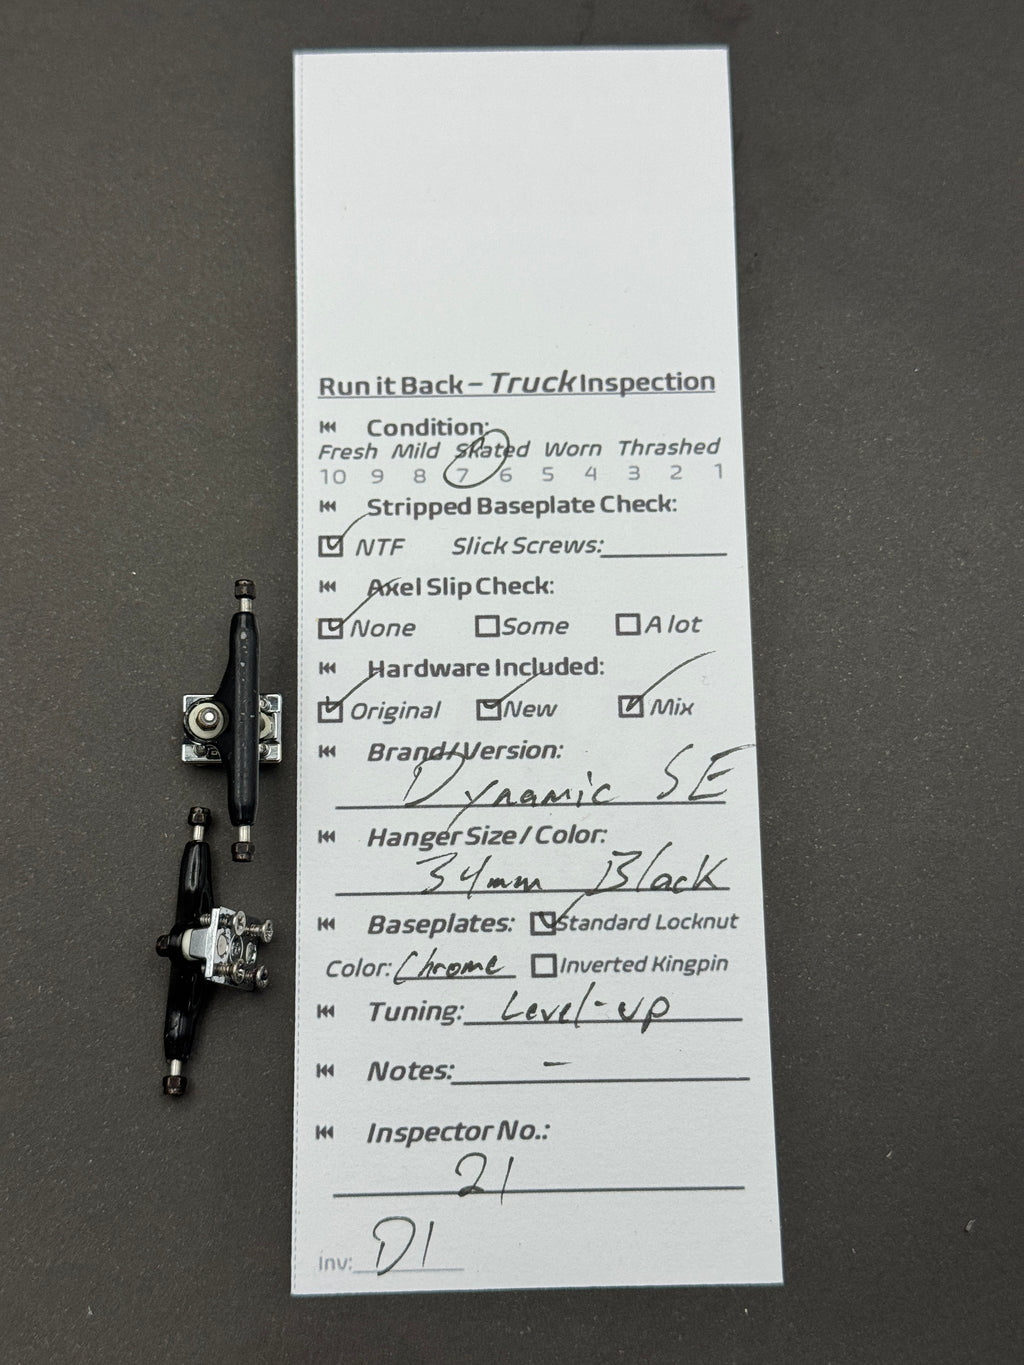 Run it Back – Truck Inspection
Condition:
Fresh Mild Skated Worn Thrashed
10 9 8 7 6 5 4 3 2 1
Stripped Baseplate Check:
NTF Slick Screws:
Axel Slip Check:
None Some A lot
Hardware Included:
Original New Mix
Brand/Version:
Dynamic SE
Hanger Size / Color:
34mm Black
Baseplates: Standard Locknut
Color: Chrome Inverted Kingpin
Tuning: Level-up
Notes: -
Inspector No.:
21
Inv: D1